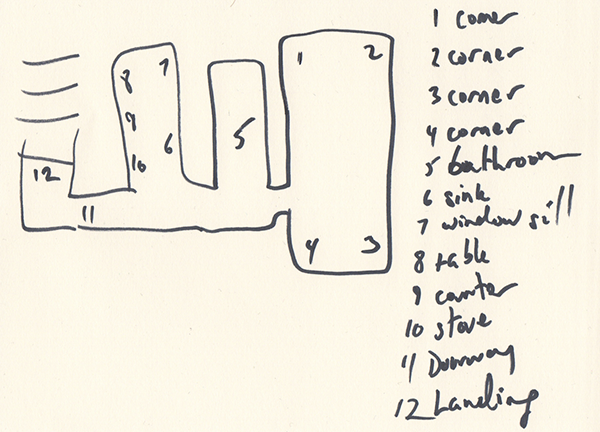 1 2
8 7
9
6
5
10
12
11
4 3
1 corner
2 corner
3 corner
4 corner
5 bathroom
6 sink
7 window sill
8 table
9 counter
10 stove
11 Doorway
12 Landing